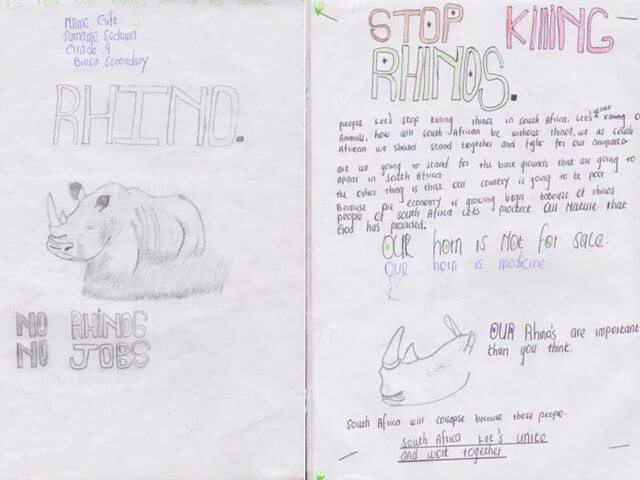 Name Gift
Surname Seduma
Grade .9
Bucon Secondary
RHINO.
NO RHINOS
NO JOBS
STOP KIllING
RHINOS.
people Let's stop killing rhinos in south Africa. Let's not killing
Animals, how will south African be without rhinos, we as south
African we should stand together and fight for our
are we going to stand for the back grounds that are going to
apear in south Africa
the other thing is that our country is going to be poor
Because are economy is growing because of rhinos
people of south Africa Lets protect our Nature that
God has provided.
OUR horn is Not for sale.
OUR horn is medicine
OUR Rhino's are important
than you think.
South Africa will collapse because these people.
South Africa Let's unite
and work together